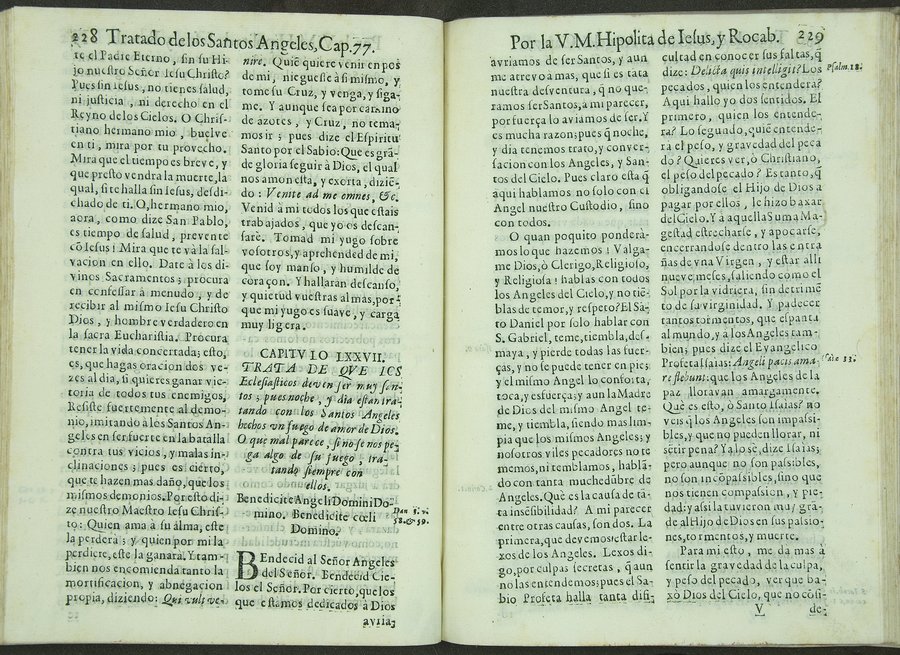 228 Tratado de los Santos Angeles, Cap. 77.
te el Padre Eterno, sin su Hi-
jo nuestro Señor Iesu Christo?
Pues sin Iesus, no tienes salud,
ni justicia, ni derecho en el
Reyno de los Cielos. O Chris-
tiano hermano mio, buelve
en ti, mira por tu provecho.
Mira que el tiempo es breve, y
que presto vendra la muerte, la
qual, si te halla sin Iesus, desdi-
chado de ti. O, hermano mio,
aora, como dize San Pablo,
es tiempo de salud, prevente
cõ Iesus! Mira que te và la sal-
vacion en ello. Date à los di-
vinos Sacramentos; procura
en confessar à menudo, y de
recibir al mismo Iesu Christo
Dios, y hombre verdadero en
la sacra Eucharistia. Procura
tener la vida concertada; esto,
es, que hagas oracion dos ve-
zes al dia, si quieres ganar vic-
toria de todos tus enemigos,
Resiste fuertemente al demo-
nio, imitando à los Santos An-
geles en ser fuerte en la batalla
contra tus vicios, y malas in-
clinaciones; pues es cierto,
que te hazen mas daño, que los
mismos demonios. Por esto di-
ze nuestro Maestro Iesu Chris-
to: Quien ama à su alma, este
la perderà; y quien por mi la
perdiere, este la ganarà. Y tam-
bien nos encomienda tanto la
mortificacion, y abnegacion
propia, diziendo: Qui vult ve-
nire. Quiẽ quiere venir en pos
de mi, nieguese à si mismo, y
tome su Cruz, y venga, y siga-
me. Y aunque sea por camino
de azotes, y Cruz, no tema-
mos ir; pues dize el Espiritu
Santo por el Sabio: Que es grã-
de gloria seguir à Dios, el qual
nos amonesta, y exorta, diziẽ-
do: Venite ad me omnes, &c.
Venid à mi todos los que estais
trabajados, que yo os descan-
sarè. Tomad mi yugo sobre
vosotros, y aprehended de mi,
que soy manso, y humilde de
coraçon. Y hallaràn descanso,
y quietud vuestras almas, por-
que mi yugo es suave, y carga
muy ligera.
CAPITVLO LXXVII.
TRATA DE QVE LOS
Eclesiasticos deven ser muy san-
tos; pues noche, y dia estan tra-
tando con los Santos Angeles
hechos vn fuego de amor de Dios.
O que mal parece, si no se nos pe-
ga algo de su fuego, tra-
tando siempre con
ellos.
Benedicite Angeli Domini Do-
mino. Benedicite cœli
Domino.
Dan 3. v.
58. & 59.
BEndecid al Señor Angeles
del Señor. Bendecid Cie-
los el Señor. Por cierto, que los
que estamos dedicados à Dios
avria-
Por la V. M. Hipolita de Iesus, y Rocab. 229
avriamos de ser Santos, y aun
me atrevo a mas, que si es tata
nuestra desventura, q̃ no que-
ramos ser Santos, a mi parecer,
por fuerça lo aviamos de ser. Y
es mucha razon; pues q̃ noche,
y dia tenemos trato, y conver-
sacion con los Angeles, y San-
tos del Cielo. Pues claro està q̃
aqui hablamos no solo con el
Angel nuestro Custodio, sino
con todos.
O quan poquito ponderà-
mos lo que hazemos! Valga-
me Dios, ò Clerigo, Religioso,
y Religiosa! hablas con todos
los Angeles del Cielo, y no tiẽ-
blas de temor, y respeto? El Sã-
to Daniel por solo hablar con
S. Gabriel, teme, tiembla, des-
maya, y pierde todas las fuer-
ças, y no se puede tener en pies;
y el mismo Angel lo conforta,
toca, y esfuerça; y aun la Madre
de Dios del mismo Angel te-
me, y tiembla, siendo mas lim-
pia que los mismos Angeles; y
nosotros viles pecadores no te
memos, ni temblamos, hablã-
do con tanta muchedũbre de
Angeles. Què es la causa de tã-
ta insẽsibilidad? A mi parecer
entre otras causas, son dos. La
primera, que devemos estar le-
xos de los Angeles. Lexos di-
go, por culpas secretas, q̃ aun
no las entendemos; pues el Sa-
bio Profeta halla tanta difi-
cultad en conocer sus faltas, q̃
dize: Delicta quis intelligit? Los
Psalm. 18.
pecados, quien los entenderà?
Aqui hallo yo dos sentidos. El
primero, quien los entende-
rà? Lo segundo, quiẽ entende-
rà el peso, y gravedad del peca
do? Quieres ver, ò Christiano,
el peso del pecado? Es tanto, q̃
obligandose el Hijo de Dios a
pagar por ellos, le hizo baxar
del Cielo. Y à aquella Suma Ma-
gestad estrecharse, y apocarse,
encerrandose dentro las entra
ñas de vna Virgen, y estar alli
nueve meses, saliendo como el
Sol por la vidriera, sin detrimẽ
to de su virginidad. Y padecer
tantos tormentos, que espanta
al mundo, y à los Angeles tam-
bien; pues dize el Evangelico
Profeta Isaias: Angeli pacis ama-
re flebunt: que los Angeles de la
paz lloravan amargamente.
Què es esto, ò Santo Isaias? no
veis q̃ los Angeles son impassi-
bles, y que no pueden llorar, ni
sẽtir pena? Ya lo sè, dize Isaias;
pero aunque no son passibles,
no son incõpassibles, sino que
nos tienen compassion, y pie-
dad; y assi la tuvieron muy grã-
de al Hijo de Dios en sus passio-
nes, tormentos, y muerte.
Para mi esto, me da mas à
sentir la gravedad de la culpa,
y peso del pecado, ver que ba-
xò Dios del Cielo, que no cõsi-
V
de-